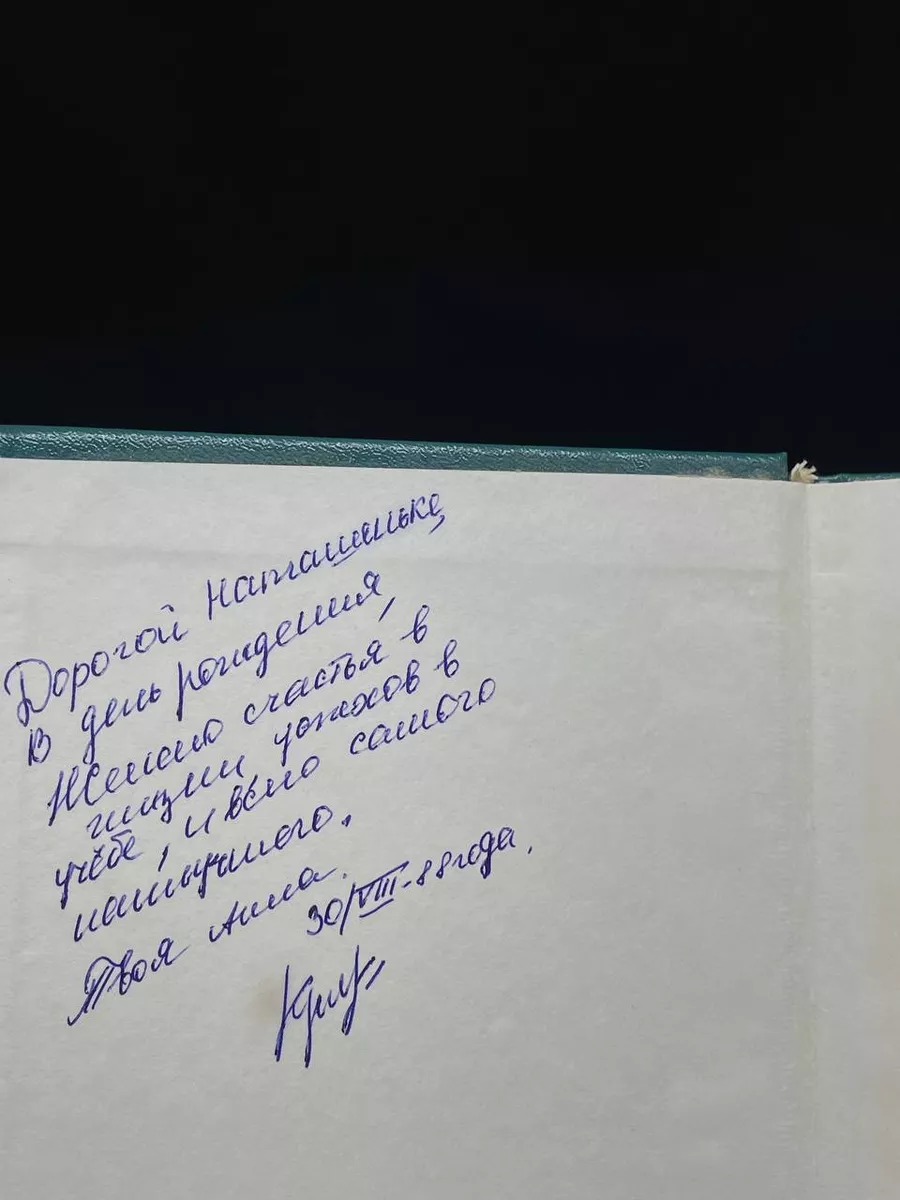 Дорогой Наташеньке,
В день рождения,
Желаю счастья в
жизни, успехов в
учёбе, и всего самого
наилучшого.
Твоя Алла.
30/VIII-88 года.